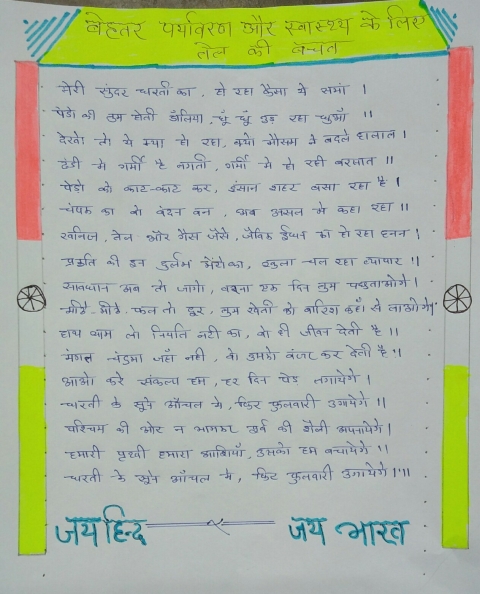 बेहतर पर्यावरण और स्वास्थ्य के लिए
तेल की बचत
मेरी सुंदर धरती का, हो रहा कैसा ये समां ।
पेडो की लुम होती डॅलिया, धूं धूं उड़ रहा धुआँ ।।
देखो तो ये क्या हो रहा, क्यो मौसम ने बदले हालात ।
ठंडी मे गर्मी है लगती, गर्मी मे हो रही बरसात ।।
पेडो को काट-काट कर, इंसान शहर बसा रहा है ।
चंपक का वो वंदन वन, अब असल मे कहा रहा ।।
खनिज, तेल और गैस जैसे, जैविक ईंधन का हो रहा हनन ।
प्रकृति की इन दुर्लभ भेंटो का, खुला चल रहा व्यापार ।।
सावधान अब तो जागो, वरना एक दिन तुम पछताओगे ।
मीठे-मीठे फल तो दूर, तुम खेती को बारिश कहाँ से लाओगे ।।
हाथ थाम लो नियति नटी का, वो ही जीवन देती है ।।
मंगल चंद्रमा जहाँ नही, वो उसको बंजर कर देती है ।।
आओ करे संकल्प हम, हर दिन पेड लगायेगे ।
धरती के सूने आँचल मे, फिर फुलवारी उगायेगे ।।
पश्चिम की ओर न भागकर पूर्व की शैली अपनायेगे ।
हमारी पृथ्वी हमारा आशियाँ, उसको हम बचायेगे ।।
धरती के सूने आँचल मे, फिर फुलवारी उगायेगे ।।
जय हिन्द जय भारत